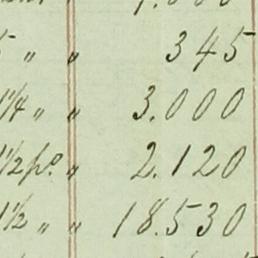 5 " " 345
1/4 " " 3.000
1/2 po. " 2.120
1/2 " " 18.530